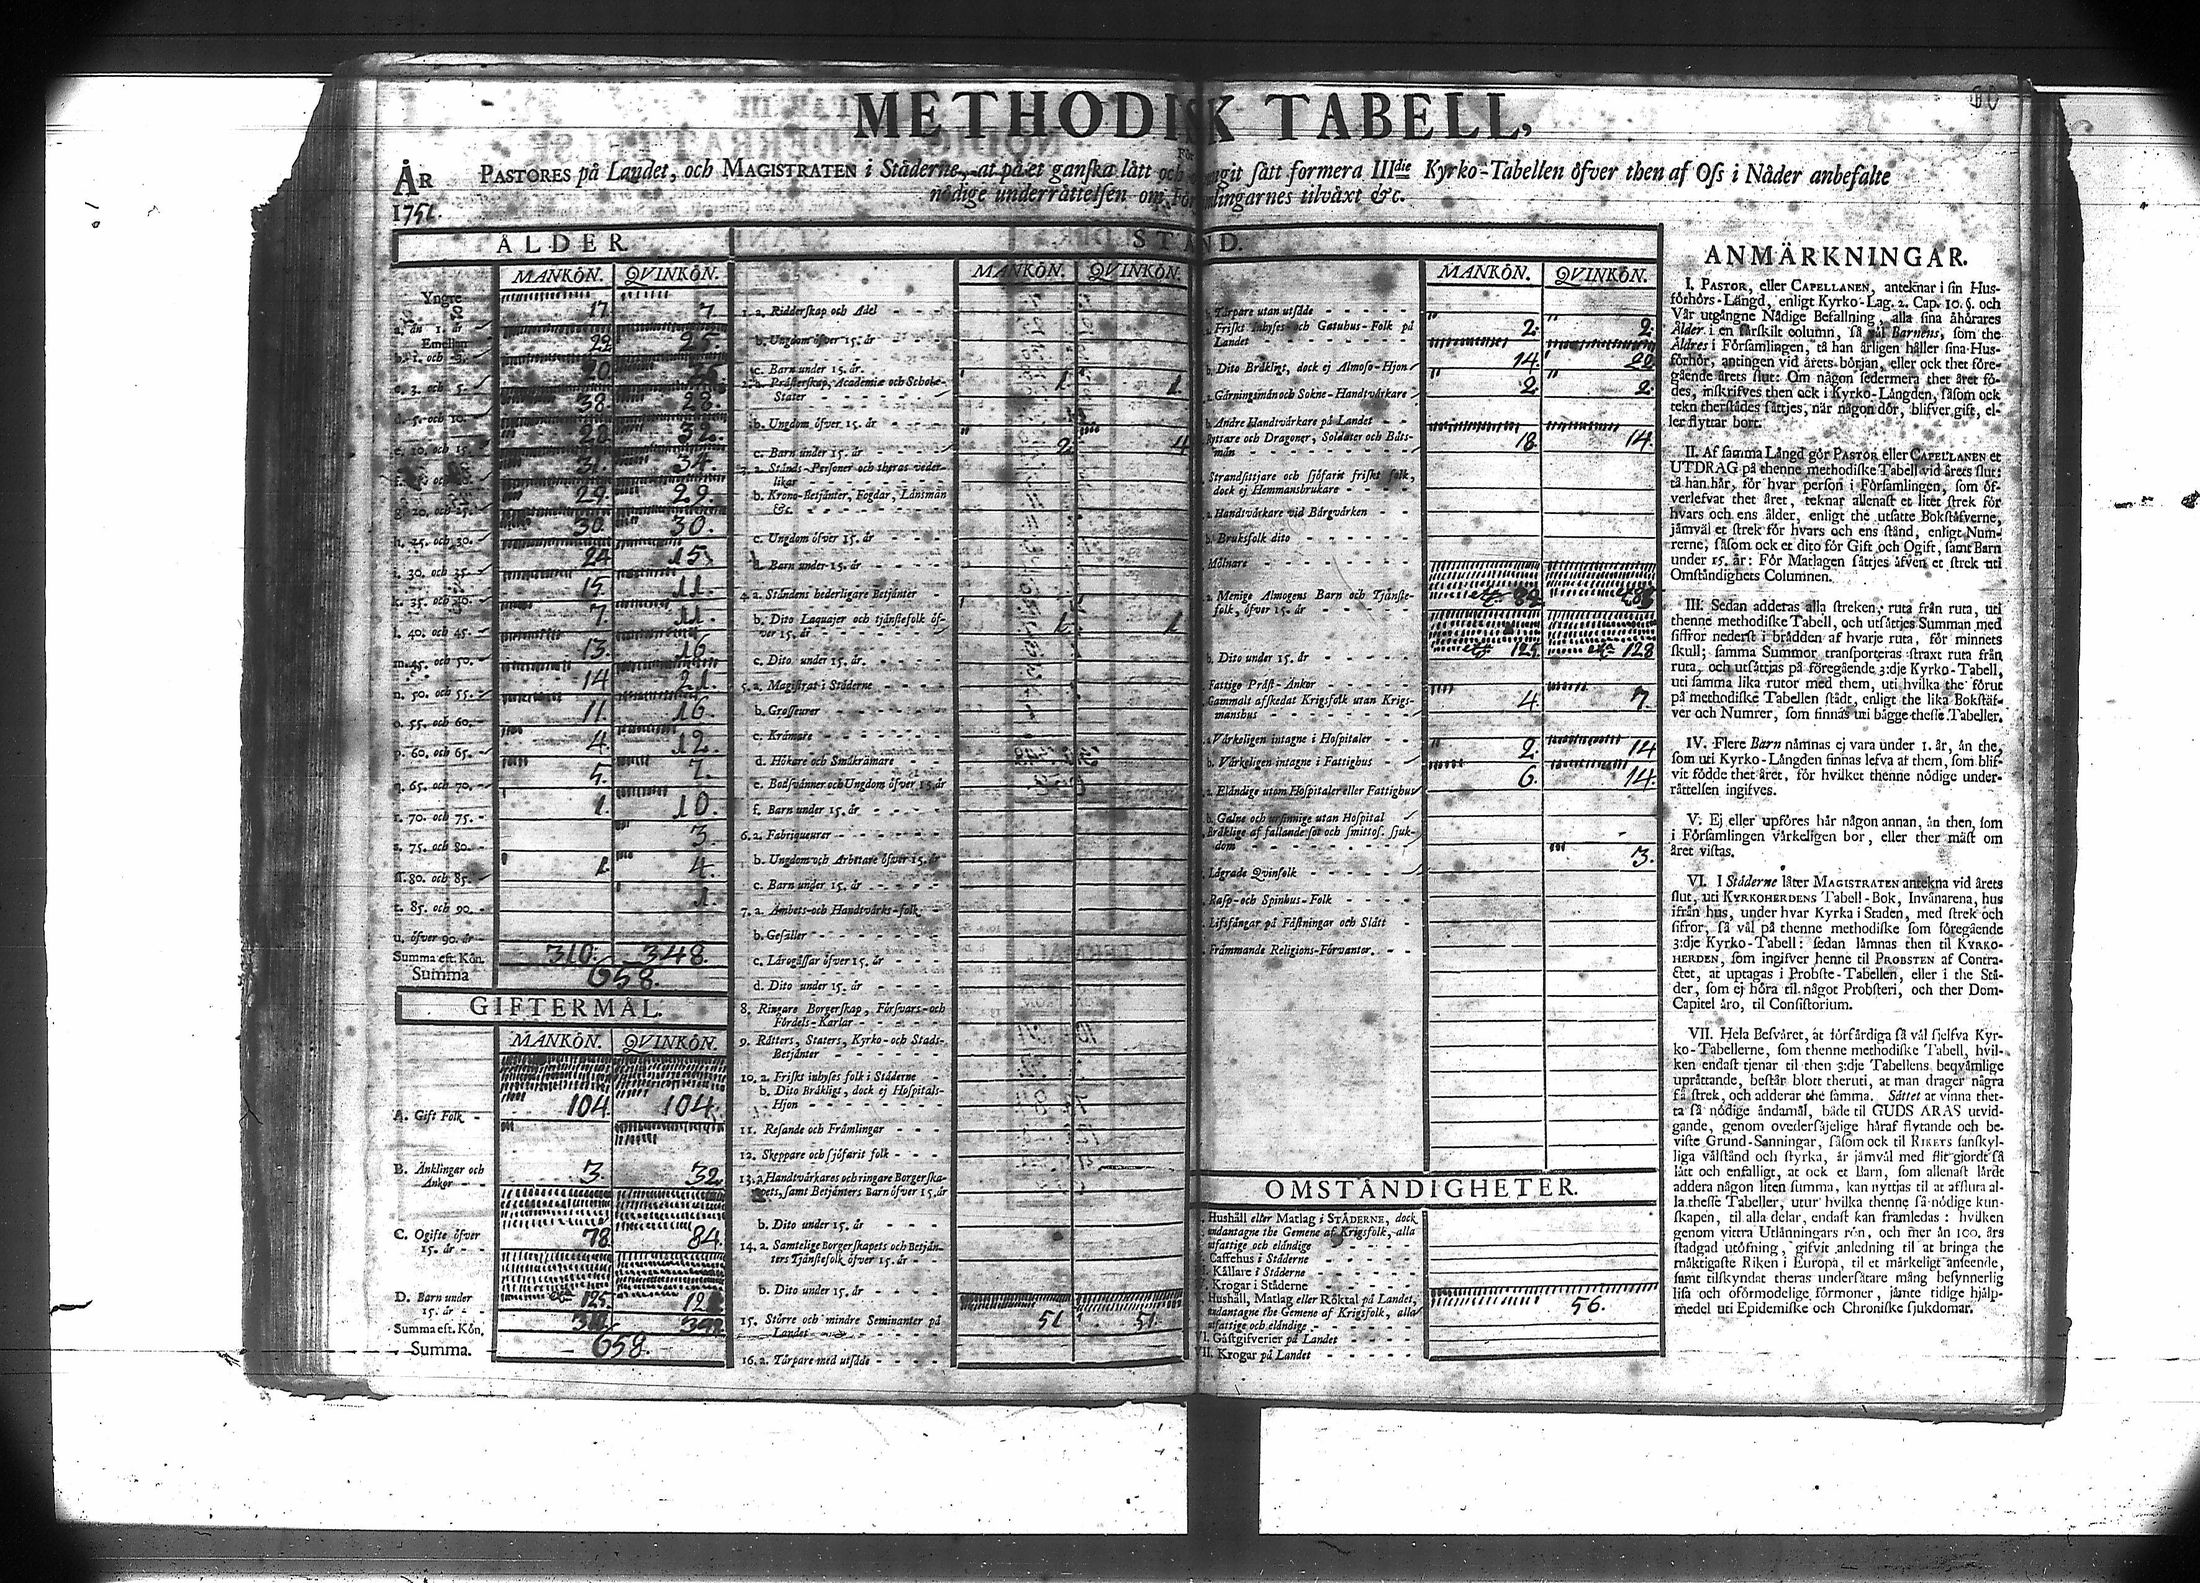 METHODISK TABELL,
För
PASTORES på Landet, och MAGISTRATEN i Städerne, at på et ganska lätt och sätt formera IIIdie Kyrko-Tabellen öfver then af Oss i Nåder anbefalte
nödige underrättelsen om Församlingarnes tilväxt &c.
ÅR
1751.
ÅLDER.
MANKÖN. QVINKÖN.
Yngre
a. än 1. år 17. 7.
Emellan
b. 1. och 3. 22. 25.
c. 3. och 5. 20.
d. 5. och 10. 38. 28.
e. 10. och 15. 28. 32.
31. 34.
g. 20. och 25. 29. 29.
h. 25. och 30. 30. 30.
i. 30. och 35. 24 15.
k. 35. och 40. 15. 11.
l. 40. och 45. 7. 11.
m. 45. och 50. 13. 16
n. 50. och 55. 14 21.
o. 55. och 60. 11. 16
p. 60. och 65. 4. 12.
q. 65. och 70. 5. 7.
r. 70. och 75. 1. 10.
s. 75. och 80. 3.
ſſ. 80. och 85. 1. 4.
t. 85. och 90. 1.
u. öfver 90. år
Summa eft. Kön. 310. 348.
Summa 658.
GIFTERMÅL.
MANKÖN. QVINKÖN.
A. Gift Folk 104. 104.
B. Änklingar och
Änkor 3. 32.
C. Ogifte öfver
15. år 78. 84.
D. Barn under
15. år 125.
Summa eft. Kön.
Summa. 658.
STÅND.
MANKÖN. QVINKÖN.
1. a. Ridderskap och Adel
b. Ungdom öfver 15. år
c. Barn under 15. år.
2. a. Prästerskap, Academiæ och Schole-
Stater 1. 1.
b. Ungdom öfver 15. år
c. Barn under 15. år 2. 4.
3. a. Stånds-Personer och theras veder-
likar
b. Krono-Betjänter, Fogdar, Länsmän
&c.
c. Ungdom öfver 15. år
d. Barn under 15. år
4. a. Ståndens hederligare Betjänter
b. Dito Laquajer och tjänstefolk öf-
ver 15. år 1. 1.
c. Dito under 15. år.
5. a. Magistrat i Städerne
b. Grosseurer
c. Krämare
d. Hökare och Småkrämare
e. Bodsvänner och Ungdom öfver 15. år
f. Barn under 15. år
6. a. Fabriqueurer
b. Ungdom och Arbetare öfver 15. år
c. Barn under 15. år
7. a. Ämbets-och Handtvärks-folk
b. Gesäller
c. Lärogåssar öfver 15. år
d. Dito under 15. år
8. Ringare Borgerskap, Försvars-och
Fördels-Karlar
9. Rätters, Staters, Kyrko-och Stads-
Betjänter
10. a. Friskt inhyses folk i Städerne
b. Dito Bräkligt, dock ej Hospitals-
Hjon
11. Resande och Främlingar
12. Skeppare och sjöfarit folk
13. a. Handtvärkares och ringare Borgerska-
pets, samt Betjänters Barn öfver 15. år
b. Dito under 15. år
14. a. Samtelige Borgerskapets och Betjän-
ters Tjänstefolk öfver 15. år
b. Dito under 15. år
15. Större och mindre Seminanter på
Landet 51 51.
16. a. Tårpare med utsäde
MANKÖN. QVINKÖN.
Tårpare utan utsäde
Friskt inhyses-och Gatuhus-Folk på
Landet 2. 2.
b. Dito Bräkligt, dock ej Almoso-Hjon 14. 20.
Gärningsmän och Sokne-Handtvärkare 2. 2.
b. Andre Handtvärkare på Landet
Ryttare och Dragoner, Soldater och Båts-
män 18. 14.
Strandsittjare och sjöfarit friskt folk,
dock ej Hemmansbrukare
a. Handtvärkare vid Bärgvärken
b. Bruksfolk dito
Mölnare
a. Menige Almogens Barn och Tjänste-
folk, öfver 15. år
b. Dito under 15. år 125. 128
Fattige Präst-Änkor
Gammalt afskedat Krigsfolk utan Krigs-
manshus 4. 7.
a. Värkeligen intagne i Hospitaler
b. Värkeligen intagne i Fattighus 2. 14
a. Eländige utom Hospitaler eller Fattighus 6. 14.
b. Galne och ursinnige utan Hospital
Bräklige af fallande sot och smittos. sjuk-
dom
Lägrade Qvinfolk 3.
Rasp-och Spinhus-Folk
Lifsfångar på Fästningar och Slått
Främmande Religions-Förvanter.
OMSTÄNDIGHETER.
Hushåll eller Matlag i STÄDERNE, dock
undantagne the Gemene af Krigsfolk, alla
utfattige och eländige
Caffehus i Städerne
Källare i Städerne
Krogar i Städerne
Hushåll, Matlag eller Röktal på Landet,
undantagne the Gemene af Krigsfolk, alla
utfattige och eländige 56.
VI. Gästgifverier på Landet
VII. Krogar på Landet
ANMÄRKNINGAR.
I. PASTOR, eller CAPELLANEN, anteknar i sin Hus-
förhörs-Längd, enligt Kyrko-Lag. 2. Cap. 10. §. och
Vår utgångne Nådige Befallning, alla sina åhörares
Ålder i en särskilt column, så väl Barnens, som the
Äldres i Församlingen, tå han årligen håller sina Hus-
förhör, antingen vid årets början, eller ock thet före-
gående årets slut: Om någon sedermera thet året fö-
des, inskrifves then ock i Kyrko-Längden, såsom ock
tekn therstädes sättjes, när någon dör, blifver gift, el-
ler flyttar bort.
II. Af samma Längd gör PASTOR eller CAPELLANEN et
UTDRAG på thenne methodiske Tabell vid årets slut:
tå han här, för hvar person i Församlingen, som öf-
verlefvat thet året, teknar allenast et litet strek för
hvars och ens ålder, enligt the utsatte Bokstäfverne,
jämväl et strek för hvars och ens stånd, enligt Num-
rerne, såsom ock et dito för Gift och Ogift, samt Barn
under 15. år: För Matlagen sättjes äfven et strek uti
Omständighets Columnen.
III. Sedan adderas alla streken, ruta från ruta, uti
thenne methodiske Tabell, och utsättjes Summan med
siffror nederst i brädden af hvarje ruta, för minnets
skull; samma Summor transporteras straxt ruta från
ruta, och utsättjas på föregående 3:dje Kyrko-Tabell,
uti samma lika rutor med them, uti hvilka the förut
på methodiske Tabellen stådt, enligt the lika Bokstäf-
ver och Numrer, som finnas uti bägge thesse Tabeller.
IV. Flere Barn nämnas ej vara under 1. år, än the,
som uti Kyrko-Längden finnas lefva af them, som blif-
vit födde thet året, för hvilket thenne nödige under-
rättelsen ingifves.
V. Ej eller upföres här någon annan, än then, som
i Församlingen värkeligen bor, eller ther mäst om
året vistas.
VI. I Städerne låter MAGISTRATEN antekna vid årets
slut, uti KYRKOHERDENS Tabell-Bok, Invånarena, hus
ifrån hus, under hvar Kyrka i Staden, med strek och
siffror, så väl på thenne methodiske som föregående
3:dje Kyrko-Tabell: sedan lämnas then til KYRKO-
HERDEN, som ingifver henne til PROBSTEN af Contra-
ctet, at uptagas i Probste-Tabellen, eller i the Stä-
der, som ej höra til något Probsteri, och ther Dom-
Capitel äro, til Consistorium.
VII. Hela Besväret, at förfärdiga så väl sjelfva Kyr-
ko-Tabellerne, som thenne methodiske Tabell, hvil-
ken endast tjenar til then 3:dje Tabellens beqvämlige
uprättande, består blott theruti, at man drager några
få strek, och adderar the samma. Sättet at vinna thet-
ta så nödige ändamål, både til GUDS ÄRAS utvid-
gande, genom ovedersäjelige häraf flytande och be-
viste Grund-Sanningar, såsom ock til RIKETS sanskyl-
liga välstånd och styrka, är jämväl med flit gjordt så
lätt och enfalligt, at ock et Barn, som allenast lärdt
addera någon liten summa, kan nyttjas til at afsluta al-
la thesse Tabeller, utur hvilka thenne så nödige kun-
skapen, til alla delar, endast kan framledas: hvilken
genom vittra Utlänningars rön, och mer än 100. års
stadgad utöfning, gifvit anledning til at bringa the
mäktigaste Riken i Europa, til et märkeligt anseende,
samt tilskyndat theras undersåtare mång besynnerlig
lisa och oförmodelige förmoner, jämte tidige hjälp-
medel uti Epidemiske och Chroniske sjukdomar.